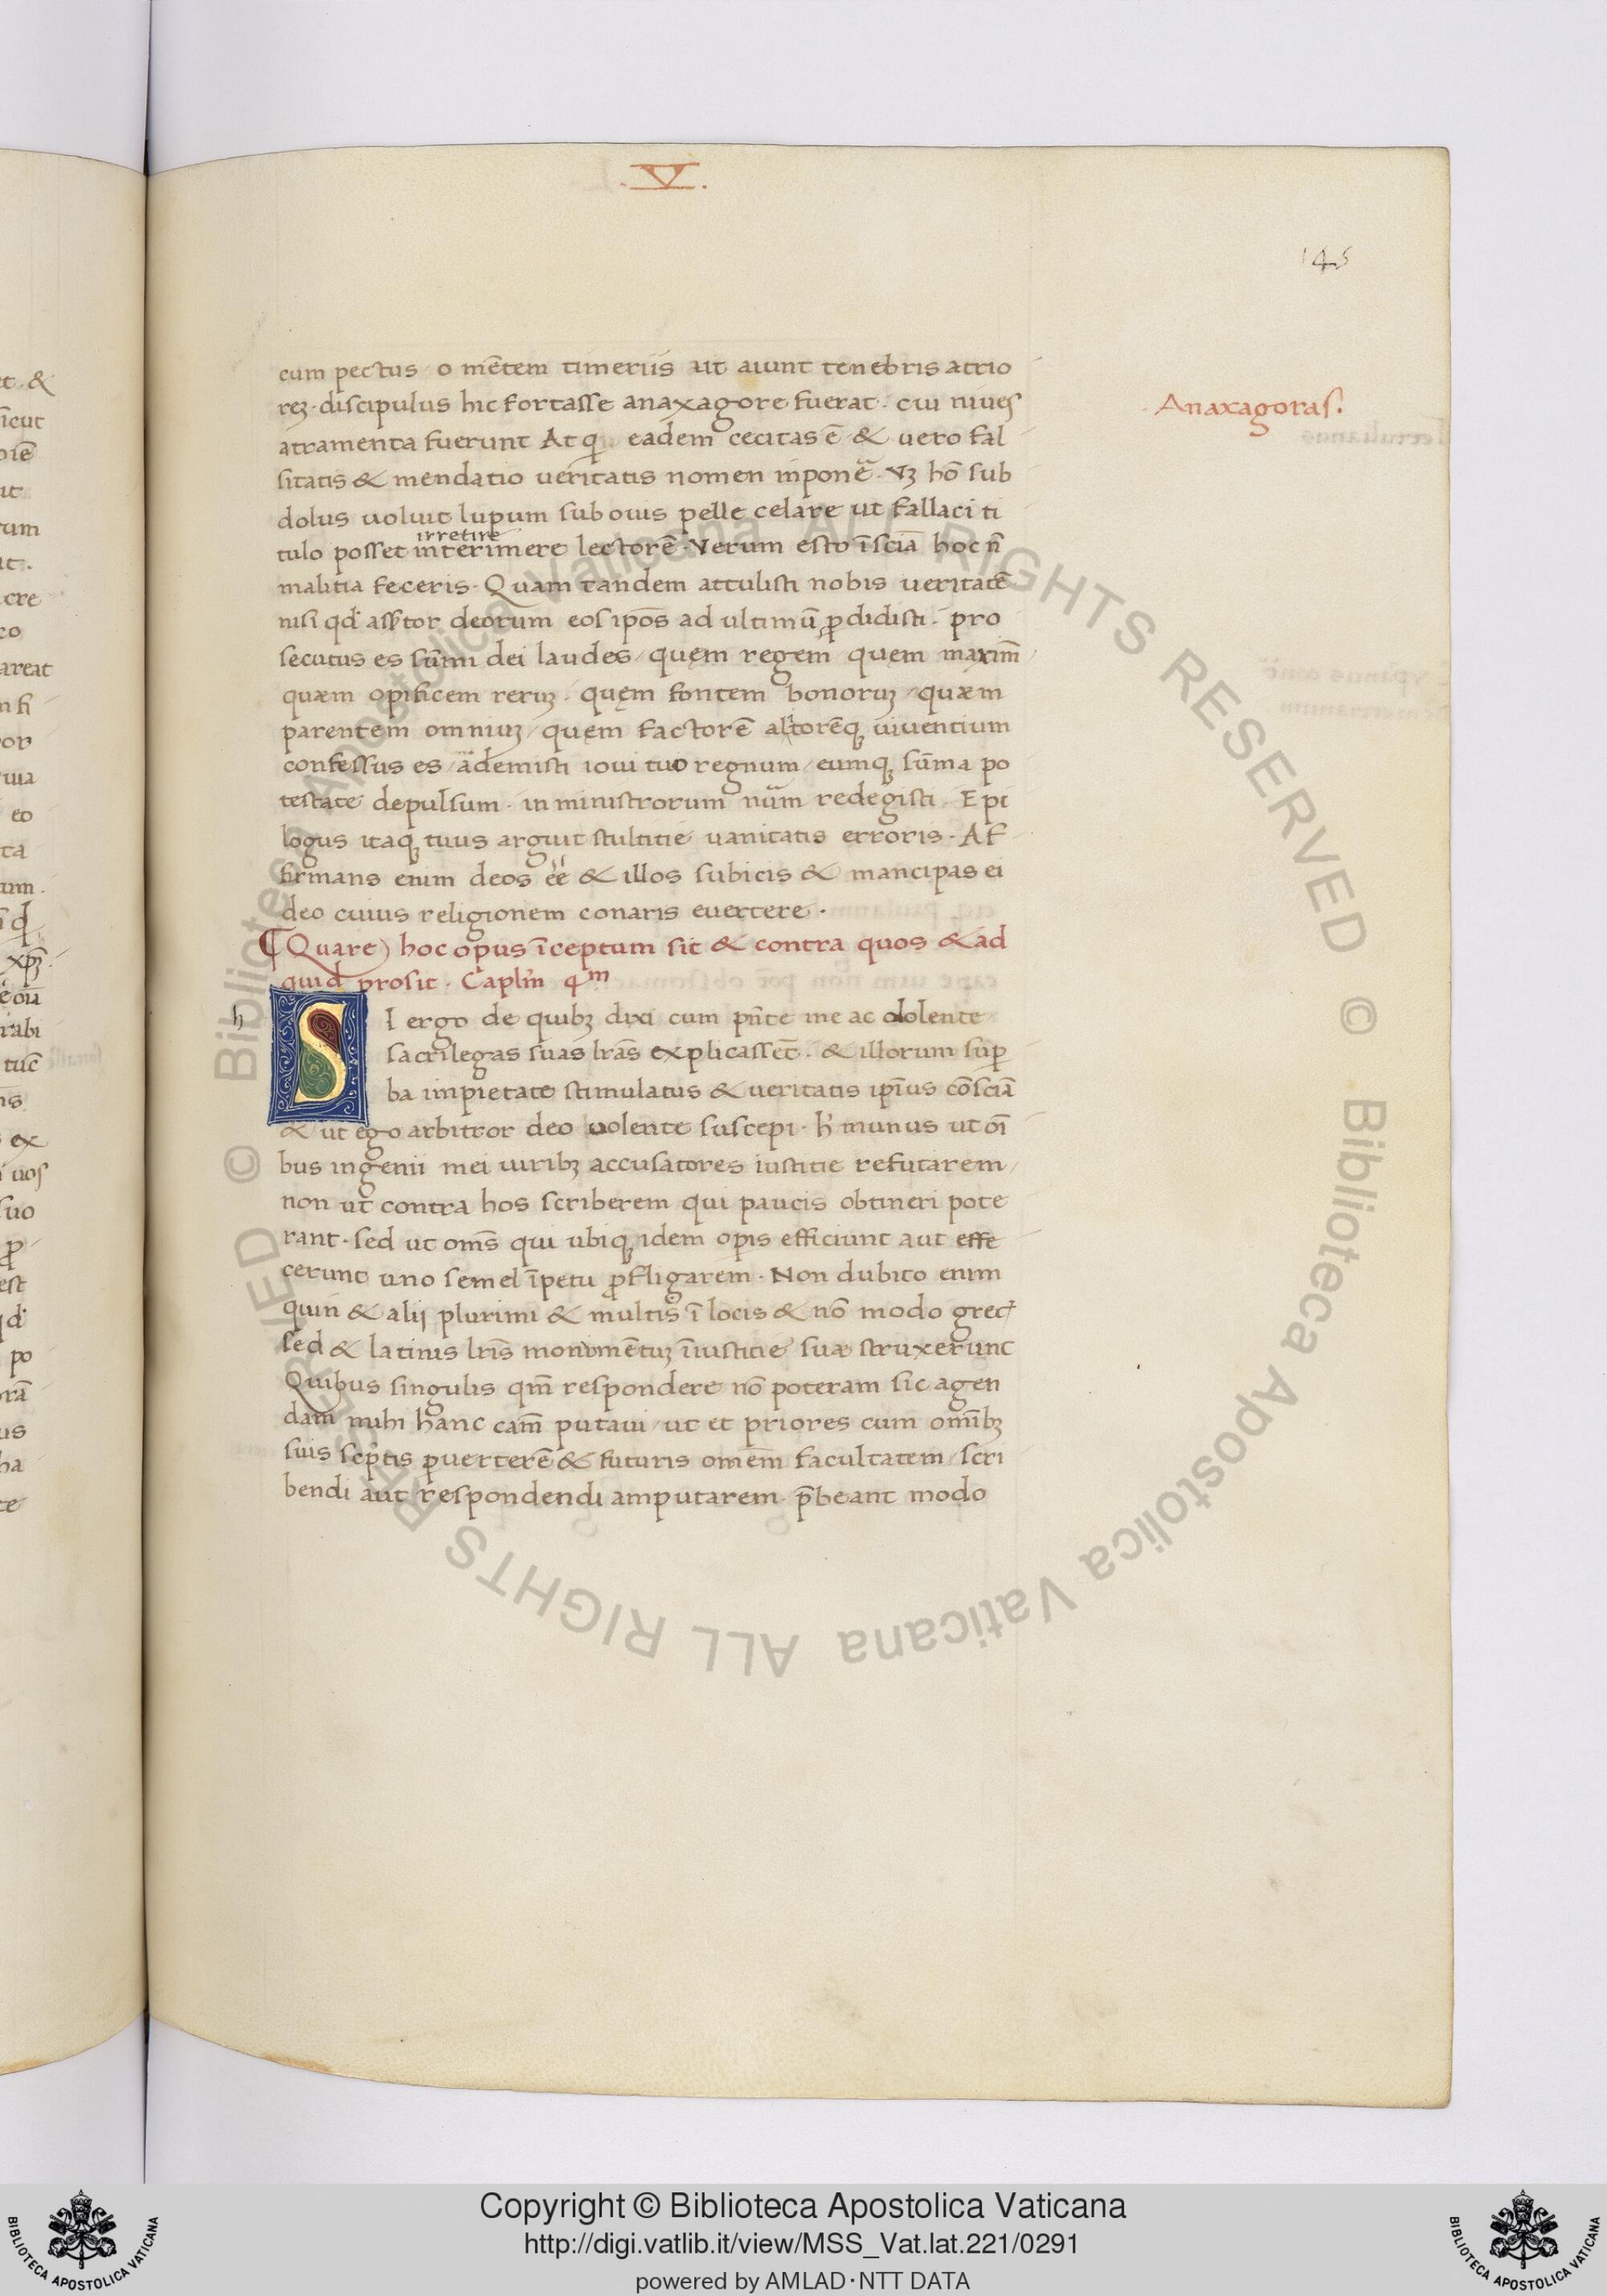 .V.
145
cum pectus · o mētem timeriis ut aiunt tenebris atrio
reꝫ · discipulus hic fortasse anaxagore fuerat · cui niues
Anaxagoras.
atramenta fuerunt At q̄ eadem cecitas ē & uero fal
sitatis & mendatio ueritatis nomen inponē · Vꝫ hō sub
dolus uoluit lupum sub ouis pelle celare ut fallaci ti
irretire
tulo posset interimere lectorē · Verum esto īsciā hoc n̄
malitia feceris · Quam tandem attulisti nobis ueritatē
nisi qd' assertor deorum eos ip̄os ad ultimū ꝓdidisti · pro
secutus es sūmi dei laudes / quem regem quem maxim̄
quæm opificem rerūꝫ · quęm fontem bonorūꝫ / quæm
parentem omniuꝫ / quem factorē altorēqꝫ uiuentium
confessus es / ademisti ioui tuo regnum / eumqꝫ sūma po
testate depulsum · in ministrorum nūm redegisti · Epi
logus itaqꝫ tuus arguit stultitie uanitatis erroris · Af
firmans enim deos ēe & illos subicis & mancipas ei
deo cuius religionem conaris euertere ·
¶ Quare hoc opus īceptum sit & contra quos & ad
quid prosit · Caplm̄ 4m
h
SI ergo de quibꝫ dixi cum pn̄te me ac dolente
sacrilegas suas lrās explicassēt · & illorum suꝑ
ba impietate stimulatus & ueritatis ip̄ius cōsciā
& ut ego arbitror deo uolente suscepi · h' munus ut oī
bus ingenii mei uiribꝫ accusatores iustitie refutarem /
non ut contra hos scriberem qui paucis obtineri pote
rant · sed ut om̄s qui ubiqꝫ idem oꝑis efficiunt aut effe
cerunt uno semel īpetu ꝓfligarem · Non dubito enim
quin & alij plurimi & multis ī locis & nō modo grecꝭ
sed & latinis lrīs monimētuꝫ īiustitie suæ struxerunt
Quibus singulis qm̄ respondere nō poteram sic agen
dam mihi hanc cam̄ putaui / ut et priores cum omībꝫ
suis sc̄ptis ꝑuerterē & futuris omēm facultatem / scri
bendi aut respondendi amputarem · p̄beant modo
Copyright © Biblioteca Apostolica Vaticana
http://digi.vatlib.it/view/MSS_Vat.lat.221/0291
powered by AMLAD·NTT DATA
© Biblioteca Apostolica Vaticana ALL RIGHTS RESERVED
© Biblioteca Apostolica Vaticana ALL RIGHTS RESERVED
BIBLIOTECA APOSTOLICA VATICANA
BIBLIOTECA APOSTOLICA VATICANA